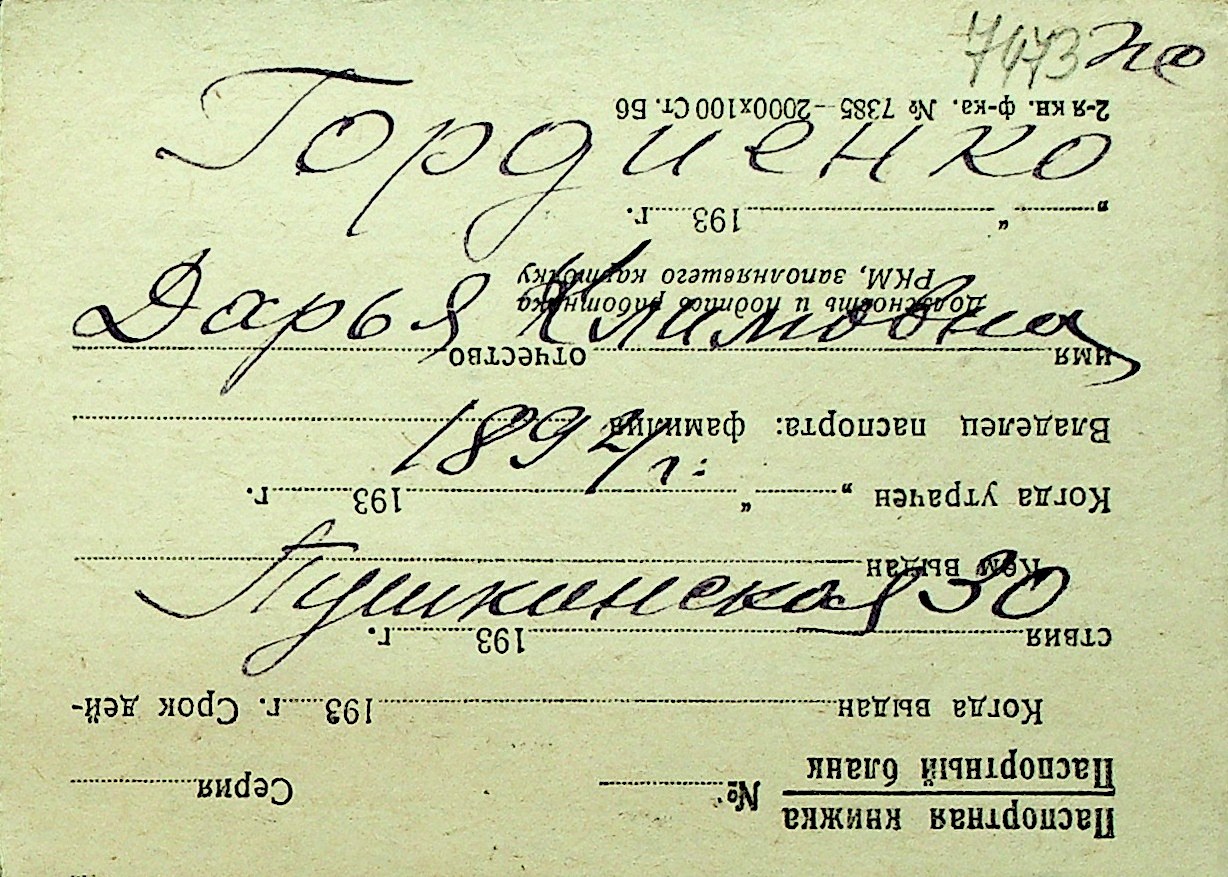 7473
Гордиенко
Дарья Климовна
1897 г.
Пушкинская 30
Паспортная книжка
Паспортный бланк
№ Серия
Когда выдан 193 г. Срок дей-
ствия 193 г.
Кем выдан
Когда утрачен „ “ 193 г.
Владелец паспорта: фамилия
имя отчество
Должность и подпись работника
РКМ, заполнявшего карточку
„ “ 193 г.
2-я кн. ф-ка. № 7385—2000х100 Ст. Б6